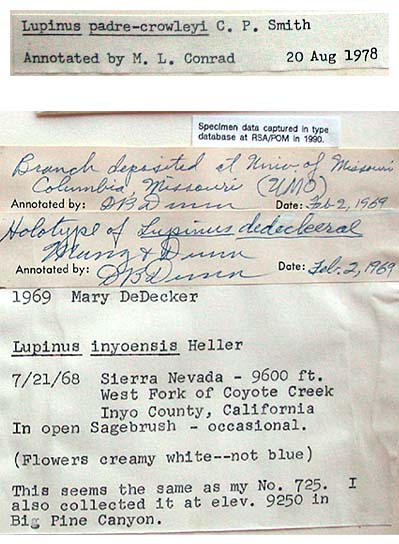 Lupinus padre-crowleyi C. P. Smith
Annotated by M. L. Conrad 20 Aug 1978
Specimen data captured in type
database at RSA/POM in 1990.
Branch deposited at Univ of Missouri
Columbia, Missouri (UMO)
Annotated by: DB Dunn Date: Feb 2, 1969
Holotype of Lupinus dedeckerae
Munz & Dunn
Annotated by: DB Dunn Date: Feb. 2, 1969
1969 Mary DeDecker
Lupinus inyoensis Heller
7/21/68 Sierra Nevada - 9600 ft.
West Fork of Coyote Creek
Inyo County, California
In open Sagebrush - occasional.
(Flowers creamy white--not blue)
This seems the same as my No. 725. I
also collected it at elev. 9250 in
Big Pine Canyon.